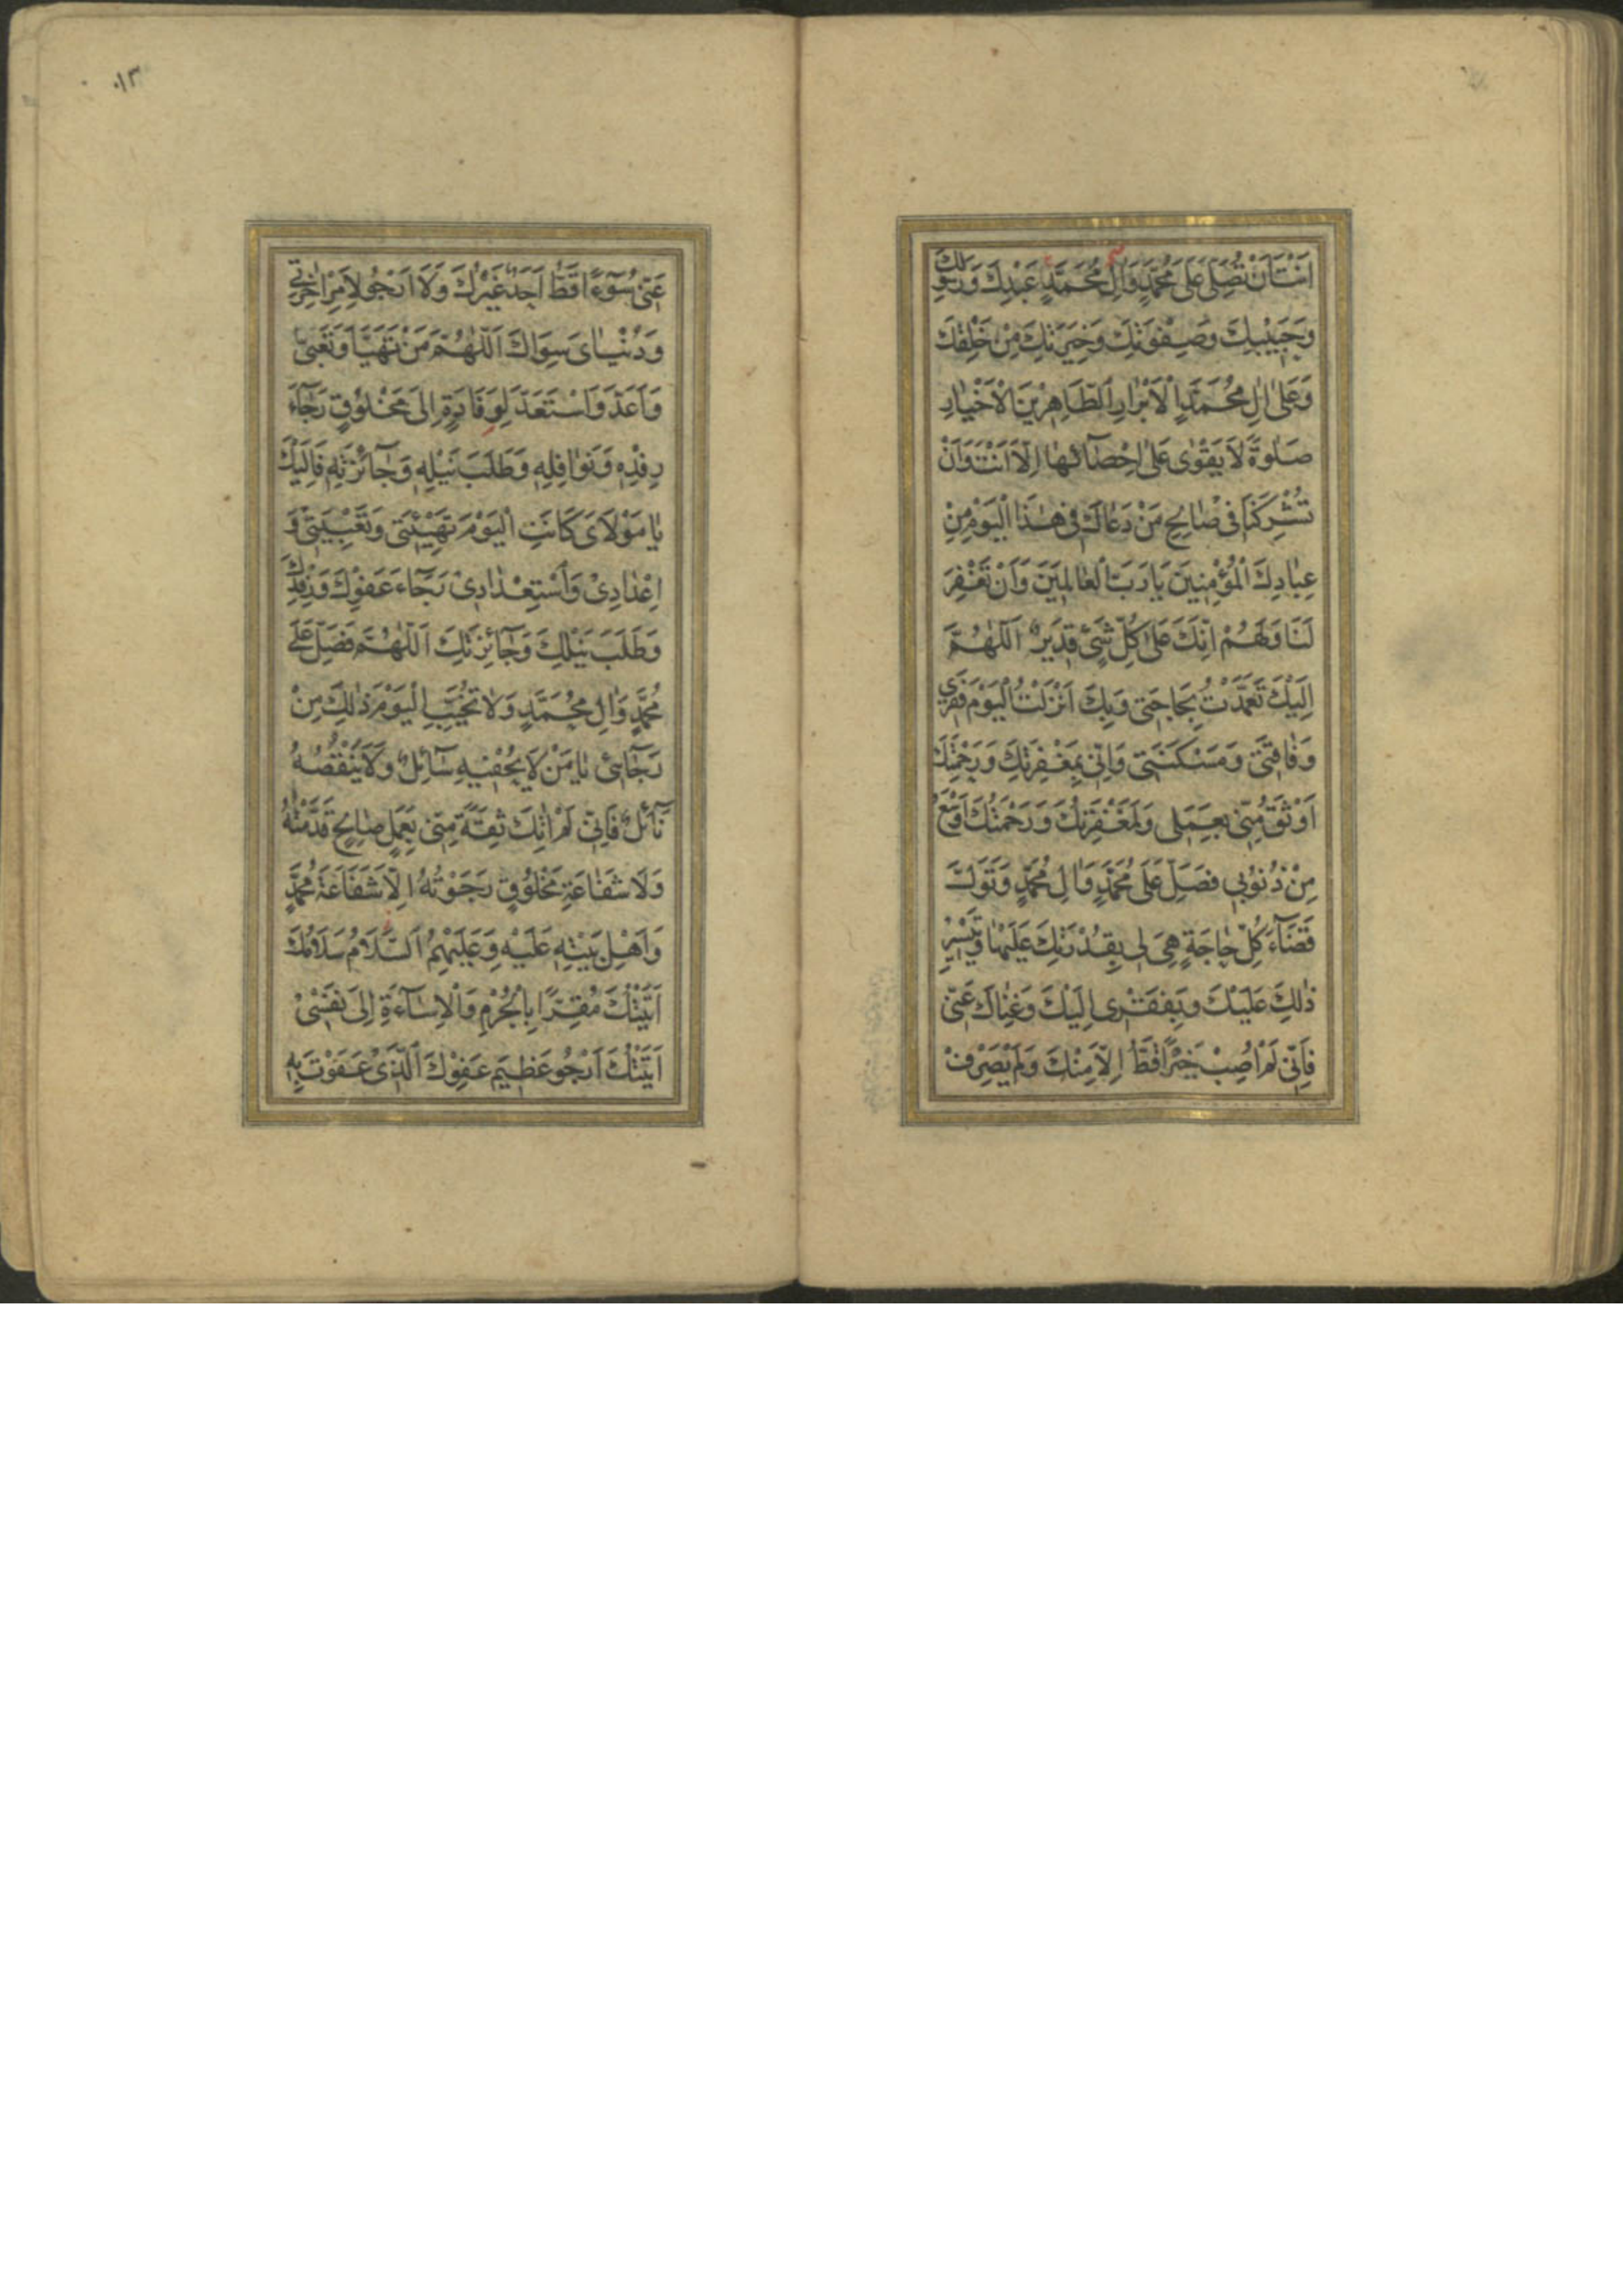 اَنْتَ اَنْ تُصَلِّیَ عَلٰی مُحَمَّدٍ وَاٰلِ مُحَمَّدٍ عَبْدِكَ وَرَسُولِكَ
وَحَبِيْبِكَ وَصِفْوَتِكَ وَخِيَرَتِكَ مِنْ خَلْقِكَ
وَعَلٰی اٰلِ مُحَمَّدٍ الْاَبْرَارِ الطَّاهِرِيْنَ الْاَخْيٰارِ
صَلٰوةً لَا يَقْوٰی عَلٰی اِحْصٰٓائِهٰا اِلَّا اَنْتَ وَاَنْ
تُشْرِكَنٰا فِی صٰالِحِ مَنْ دَعٰاكَ فِی هٰذَا الْيَوْمِ مِنْ
عِبٰادِكَ الْمُؤْمِنِينَ يَا رَبَّ الْعٰالَمِينَ وَاَنْ تَغْفِرَ
لَنَا وَلَهُمْ اِنَّكَ عَلٰی كُلِّ شَیْءٍ قَدِيرٌ اَللّٰهُمَّ
اِلَيْكَ تَعَمَّدْتُ بِحَاجَتِی وَبِكَ اَنْزَلْتُ الْيَوْمَ فَقْرِي
وَفَاقَتِی وَمَسْكَنَتِی وَاِنِّی بِمَغْفِرَتِكَ وَرَحْمَتِكَ
اَوْثَقُ مِنِّی بِعَمَلِی وَلَمَغْفِرَتُكَ وَرَحْمَتُكَ اَوْسَعُ
مِنْ ذُنُوْبِي فَصَلِّ عَلٰی مُحَمَّدٍ وَاٰلِ مُحَمَّدٍ وَتَوَلَّ
قَضَآءَ كُلِّ حٰاجَةٍ هِیَ لِی بِقُدْرَتِكَ عَلَيْهٰا وَتَيْسِيْرِ
ذٰلِكَ عَلَيْكَ وَبِفَقْرِی اِلَيْكَ وَغِنٰاكَ عَنِّی
فَاِنِّی لَمْ اُصِبْ خَيْرًا قَطُّ اِلَّا مِنْكَ وَلَمْ يَصْرِفْ
١٣
عَنِّی سُوٓءًا قَطُّ اَحَدٌ غَيْرُكَ وَلَا اَرْجُو لِاَمْرِ اٰخِرَتِي
وَدُنْيٰایَ سِوَاكَ اَللّٰهُمَّ مَنْ تَهَيَّأَ وَتَعَبّیٰ
وَاَعَدَّ وَاسْتَعَدَّ لِوِفَادَةٍ اِلیٰ مَخْلُوْقٍ رَجٰٓاءَ
رِفْدِهٖ وَنَوٰافِلِهٖ وَطَلَبَ نَيْلِهٖ وَجٰٓائِزَتِهٖ فَاِلَيْكَ
يٰا مَوْلَایَ كَانَتِ الْيَوْمَ تَهْيِئَتِی وَتَعْبِيَتِی وَ
اِعْدٰادِیْ وَاسْتِعْدٰادِیْ رَجٰٓاءَ عَفْوِكَ وَرِفْدِكَ
وَطَلَبَ نَيْلِكَ وَجٰٓائِزَتِكَ اَللّٰهُمَّ فَصَلِّ عَلٰی
مُحَمَّدٍ وَاٰلِ مُحَمَّدٍ وَلَا تُخَيِّبِ الْيَوْمَ ذٰلِكَ مِنْ
رَجٰٓائِی يٰا مَنْ لَا يُحْفِيْهِ سَآئِلٌ وَلَا يَنْقُصُهُ
نٰٓائِلٌ فَاِنِّی لَمْ اٰتِكَ ثِقَةً مِنِّی بِعَمَلٍ صٰالِحٍ قَدَّمْتُهُ
وَلَا شَفٰاعَةِ مَخْلُوْقٍ رَجَوْتُهُ اِلَّا شَفَاعَةَ مُحَمَّدٍ
وَاَهْلِ بَيْتِهٖ عَلَيْهِ وَعَلَيْهِمُ السَّلَامُ سَلَامُكَ
اَتَيْتُكَ مُقِرًّا بِالْجُرْمِ وَالْاِسٰٓاءَةِ اِلیٰ نَفْسِیْ
اَتَيْتُكَ اَرْجُو عَظِيمَ عَفْوِكَ الَّذِیْ عَفَوْتَ بِهٖ